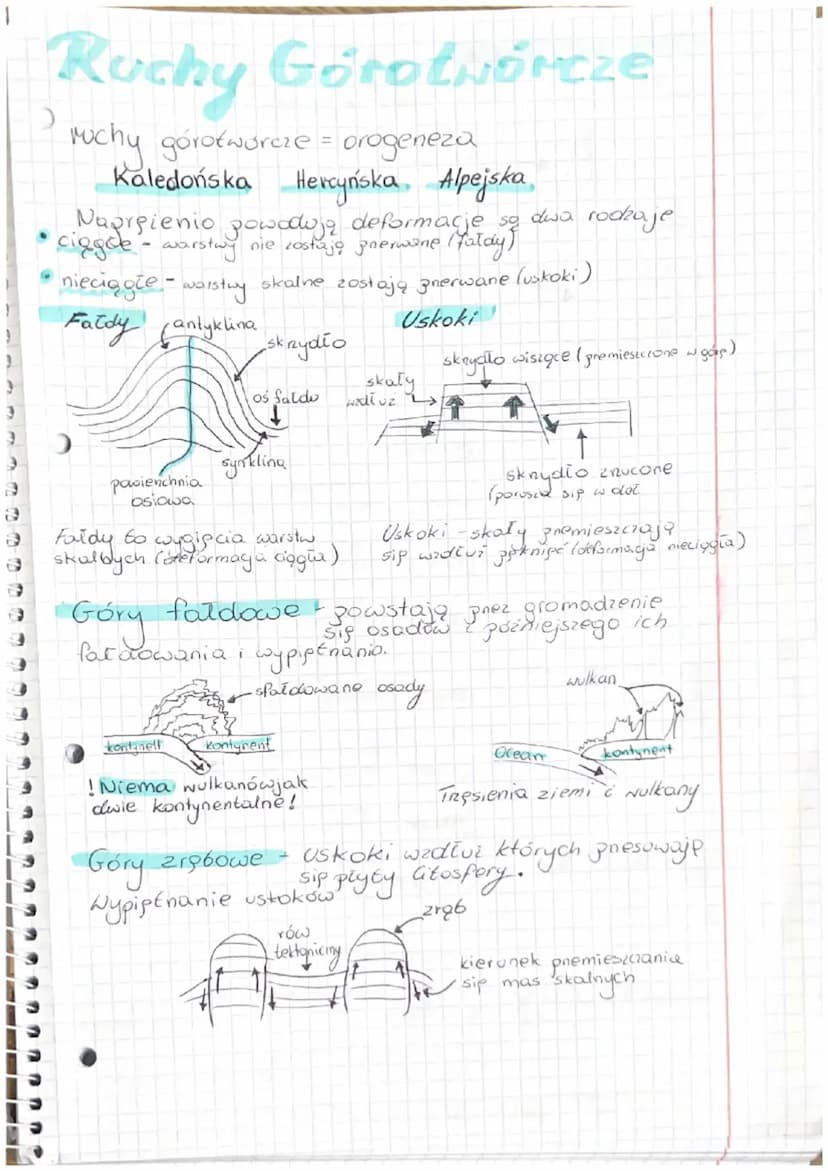 Ruchy Górotwórcze
ruchy górotwórcze = orogeneza
Kaledońska Hercyńska Alpejska
Naprężenia powodują deformacje są dwa rodzaje
• ciągłe - warstwy nie zostają przerwane (fałdy)
• nieciągłe - warstwy skalne zostają przerwane (uskoki)
Fałdy
antyklina
skrzydło
oś fałdu
synklina
powierzchnia
osiowa
Uskoki
skrzydło wiszące (przemieszczone w górę)
skały
wzdłuż
skrzydło zrzucone
(porusza się w dół
Fałdy to wygięcia warstw
skalnych (deformacja ciągła)
Uskoki - skały przemieszczają
się wzdłuż pęknięć (deformacja nieciągła)
Góry fałdowe - powstają przez gromadzenie
się osadów i późniejszego ich
fałdowania i wypiętrzania.
sfałdowane osady
kontynent
kontynent
! Niema wulkanówjak
dwie kontynentalne!
wulkan
Ocean
kontynent
Trzęsienia ziemi i wulkany
Góry zrębowe - uskoki wzdłuż których przesuwają
się płyty litosfery.
Wypiętrzanie uskoków
rów
tektoniczny
zrąb
kierunek przemieszczania
się mas skalnych